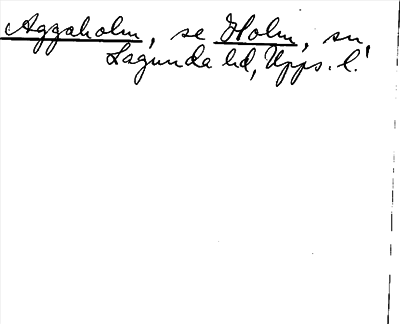 Aggaholm, se Holm, sn,
Lagunda hd, Upps. l.